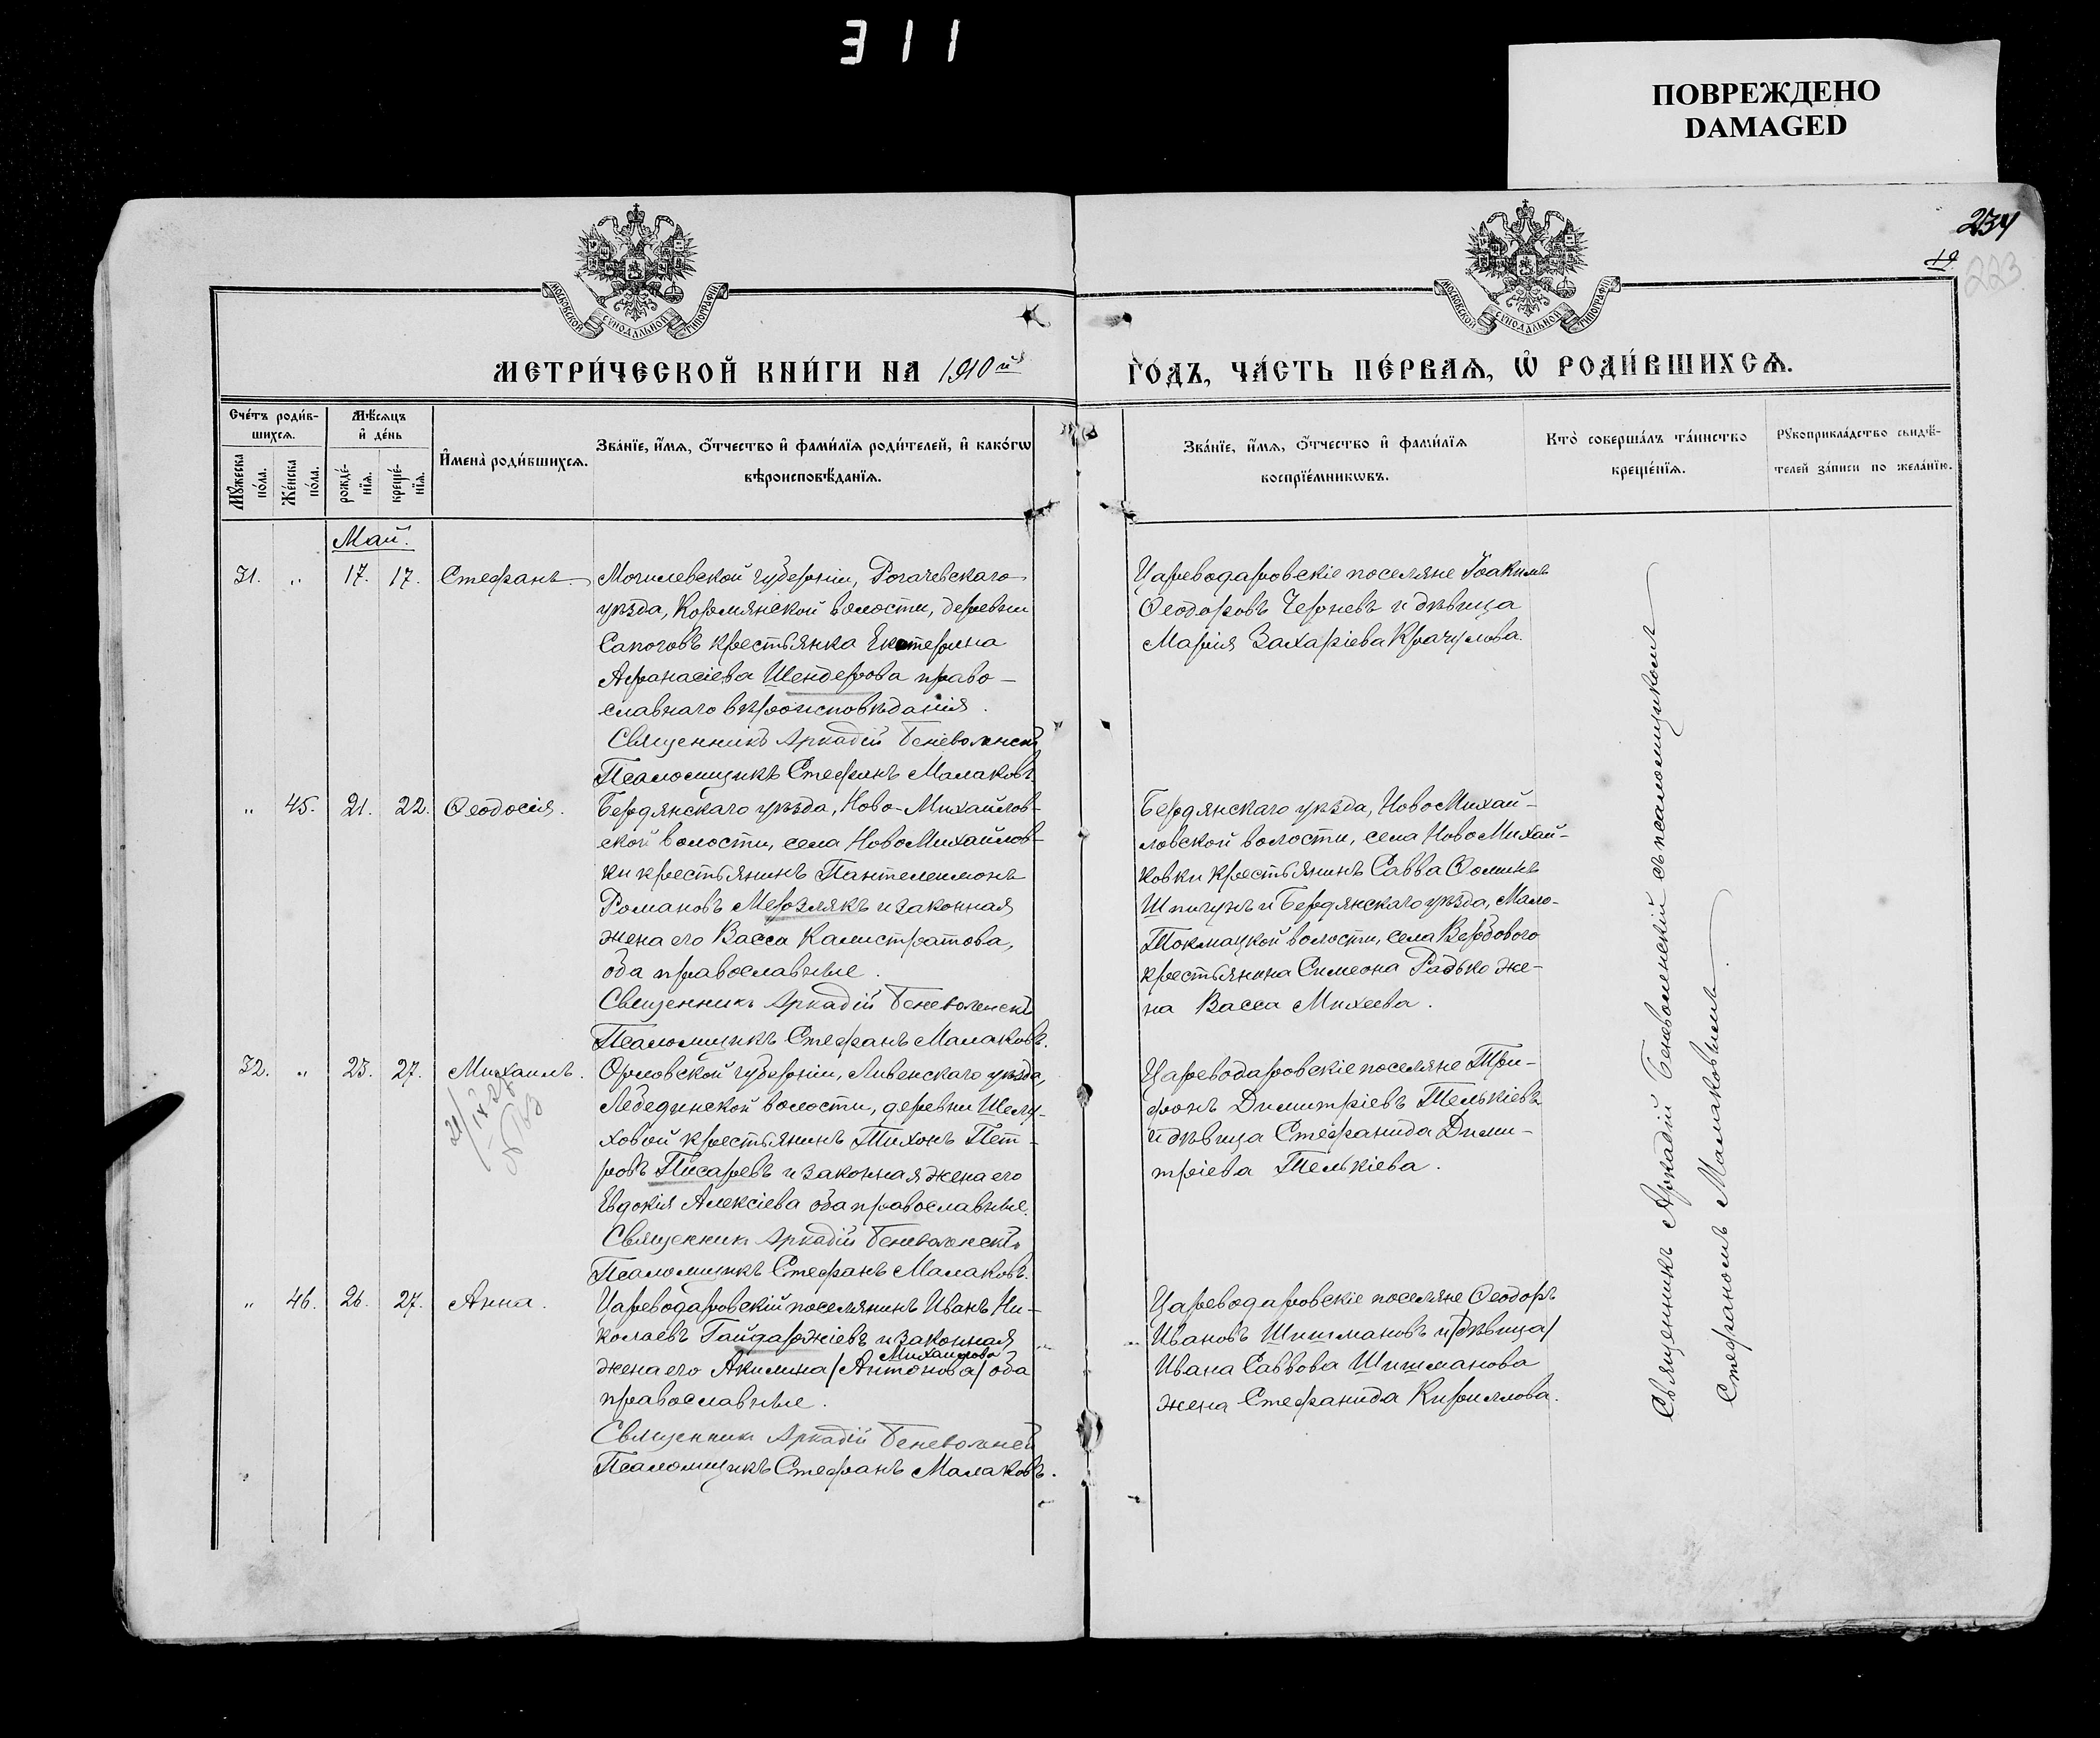 311
ПОВРЕЖДЕНО
DAMAGED
234
19
223
МОСКОВСКОЙ СѴНОДАЛЬНОЙ ТИПОГРАФІИ
МОСКОВСКОЙ СѴНОДАЛЬНОЙ ТИПОГРАФІИ
МЕТРИ́ЧЕСКОЙ КНИ́ГИ НА 1910й
ГО́ДЪ, ЧА́СТЬ ПЕ́РВАѦ, Ѡ҆ РОДИ́ВШИХСѦ.
Сче́тъ роди́в-
шихсѧ.
Мꙋ́жеска по́ла.
Же́нска по́ла.
Мѣ́сѧцъ
и҆ де́нь
рожде́-нїѧ.
креще́-нїѧ.
И҆мена̀ роди́вшихсѧ.
Зва́нїе, и҆́мѧ, ѻ҆́тчество и҆ фами́лїѧ роди́телей, и҆ како́гѡ
вѣроисповѣ́данїѧ.
Зва́нїе, и҆́мѧ, ѻ҆́тчество и҆ фами́лїѧ
воспрїе́мникѡвъ.
Кто̀ соверша́лъ та́инство
креще́нїѧ.
Рꙋкоприкла́дство свидѣ́-
телей за́писи по жела́нїю.
Май.
31. „ 17. 17. Стефанъ.
Могилевской губерніи, Рогачевскаго
уѣзда, Кормянской волости, деревни
Сапоговъ крестьянка Екатерина
Афанасіева Шендерова право-
славнаго вѣроисповѣданія.
Священникъ Аркадій Беневоленскій
Псаломщикъ Стефанъ Малаковъ.
Цареводаровскіе поселяне Іоакимъ
Ѳеодоровъ Черневъ и дѣвица
Марія Захаріева Крачулова.
„ 45. 21. 22. Ѳеодосія.
Бердянскаго уѣзда, Ново-Михайлов-
ской волости, села НовоМихайлов-
ки крестьянинъ Пантелеимонъ
Романовъ Мерзлякъ и законная
жена его Васса Калистратова,
оба православные.
Священникъ Аркадій Беневоленскій
Псаломщикъ Стефанъ Малаковъ.
Бердянскаго уѣзда, НовоМихай-
ловской волости, села НовоМихай-
ковки крестьянинъ Савва Ѳоминъ
Шпигунъ и Бердянскаго уѣзда, Мало-
Токмацкой волости, села Вербового
крестьянина Симеона Радько же-
на Васса Михеева.
32. „ 23. 27. Михаилъ.
Орловской губерніи, Ливенскаго уѣзда,
Лебединской волости, деревни Шелу-
ховой крестьянинъ Тихонъ Пет-
ровъ Писаревъ и законная жена его
Евдокія Алексіева оба православные.
Священникъ Аркадій Беневоленскій
Псаломщикъ Стефанъ Малаковъ.
Цареводаровскіе поселяне Три-
фонъ Димитріевъ Телькіевъ
и дѣвица Стефанида Дими-
тріева Телькіева.
„ 46. 26. 27. Анна.
Цареводаровскій поселянинъ Иванъ Ни-
колаевъ Гайдаржіевъ и законная
Михаилова
жена его Акилина /Антонова/ оба
православные.
Священникъ Аркадій Беневоленскій
Псаломщикъ Стефанъ Малаковъ.
Цареводаровскіе поселяне Ѳеодоръ
Ивановъ Шишмановъ и /дѣвица/
Ивана Саввова Шишманова
жена Стефанида Кириллова.
Священникъ Аркадій Беневоленскій съ псаломщикомъ
Стефаномъ Малаковымъ.